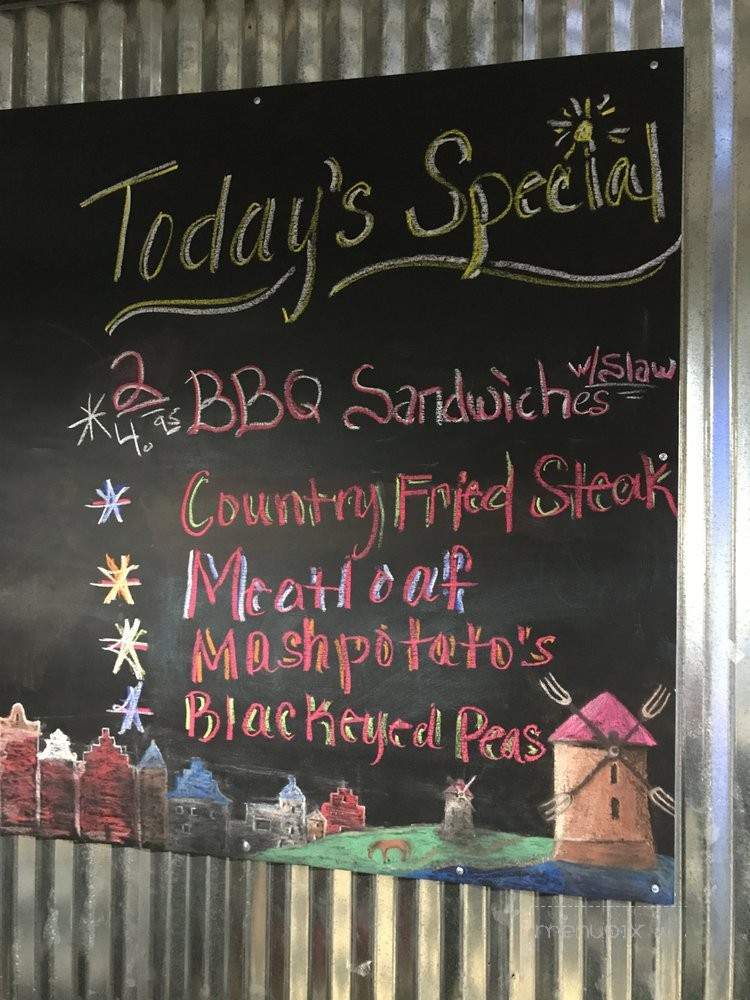 Today's Special
* 2 BBQ Sandwiches w/Slaw
4.95
* Country Fried Steak
* Meatloaf
* Mashpotato's
* Blackeyed Peas
menupix